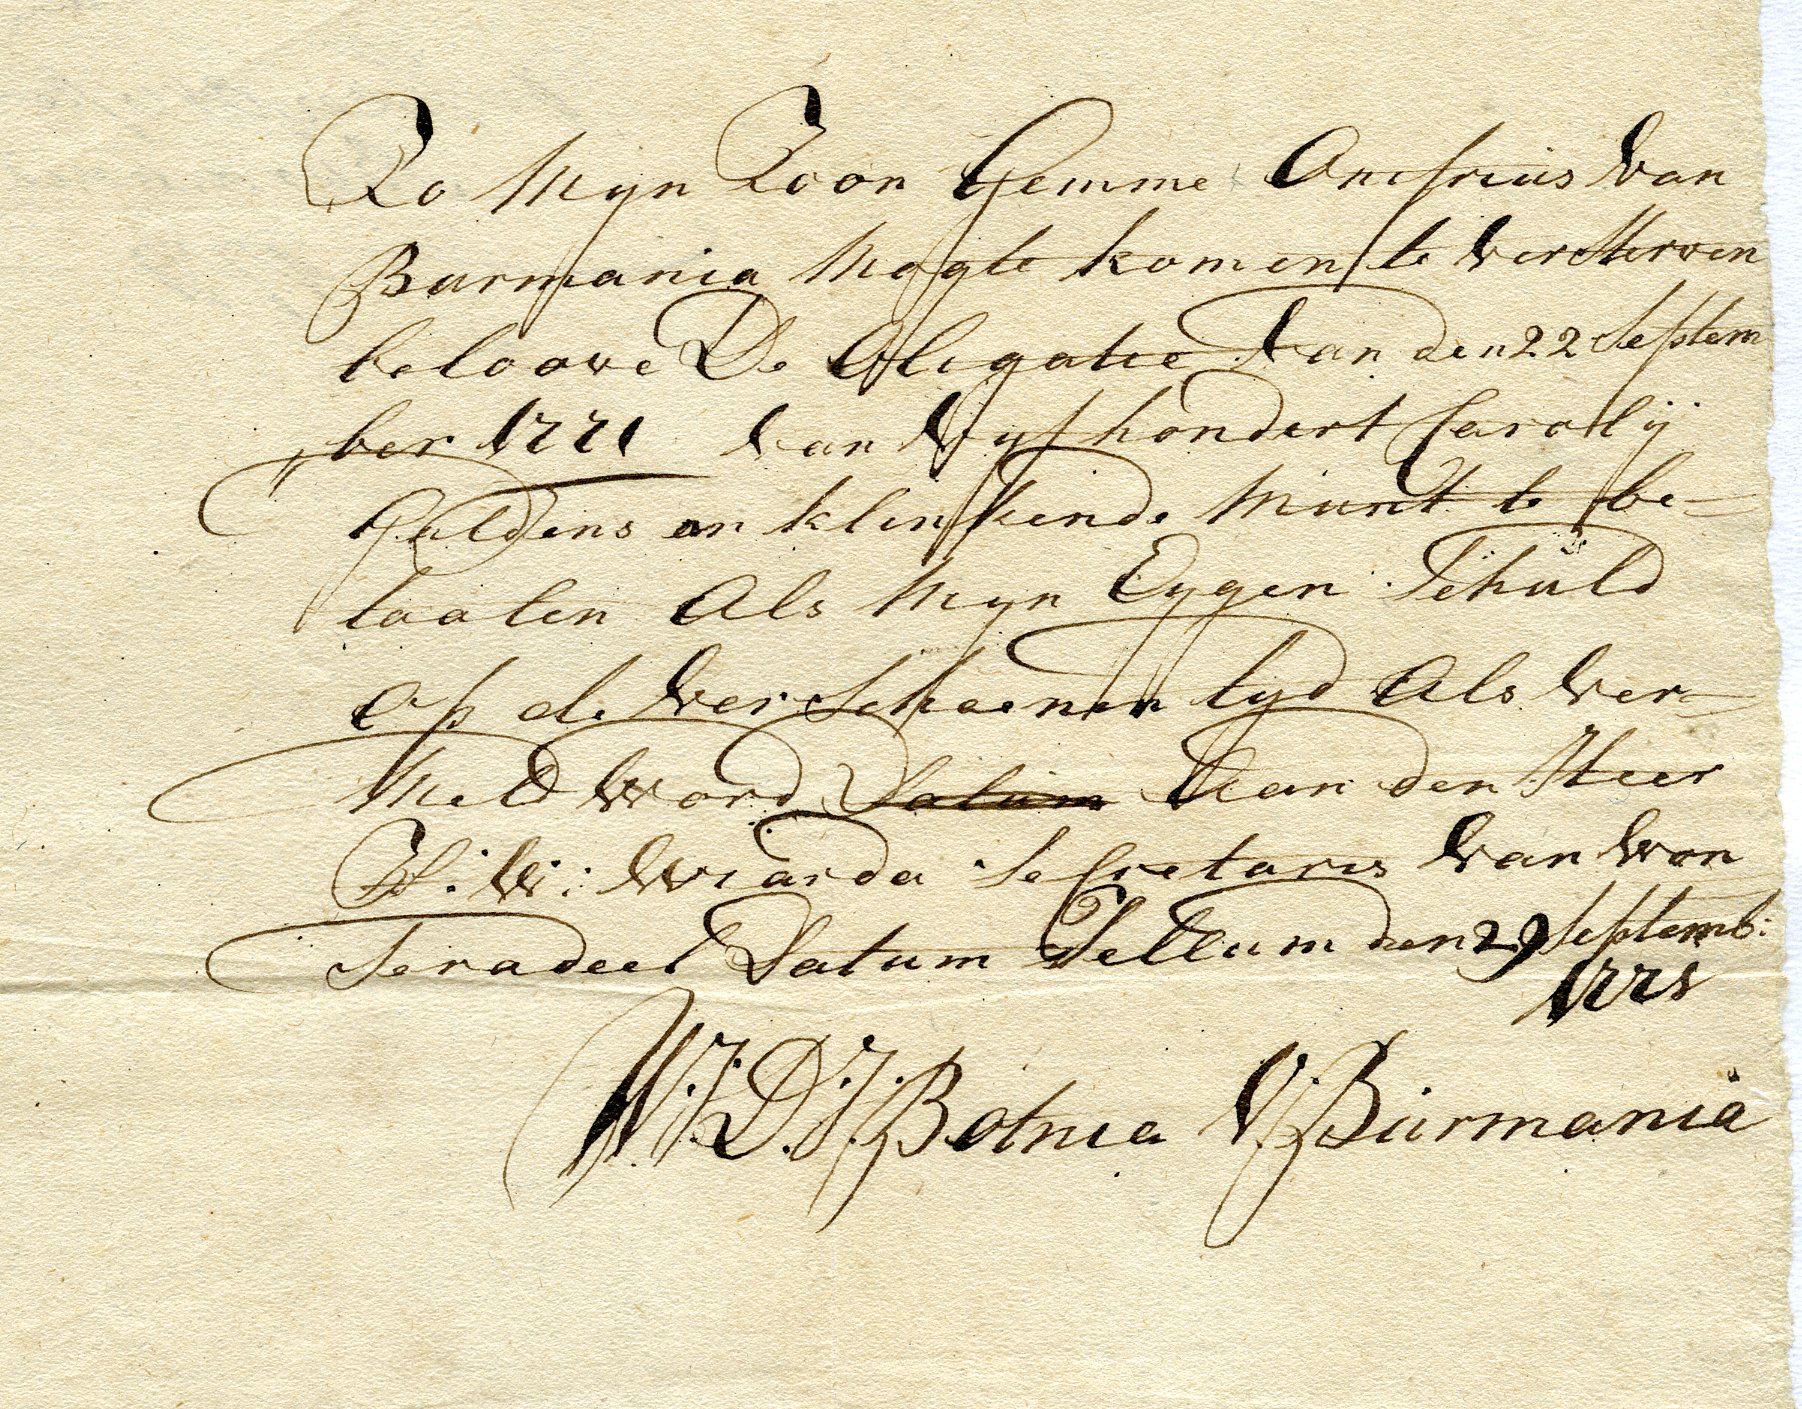 Zo Mijn Zoon Gemme Onufrius van
Burmania Mogte komen te versterven
beloove De Obligatie van den 22 Septem
„ber 1771 van Vijfhondert Carolij
Guldens an klinkende Munt te be-
taalen Als Mijn Eygen Schuld
op de verscheenen tyd Als ver-
Meld word Datum Aan den Heer
W: Wiarda Secretaris van Won
seradeel Datum Jellum den 29 Septemb:
1771
W. J. D. J. Botnia V. Burmania